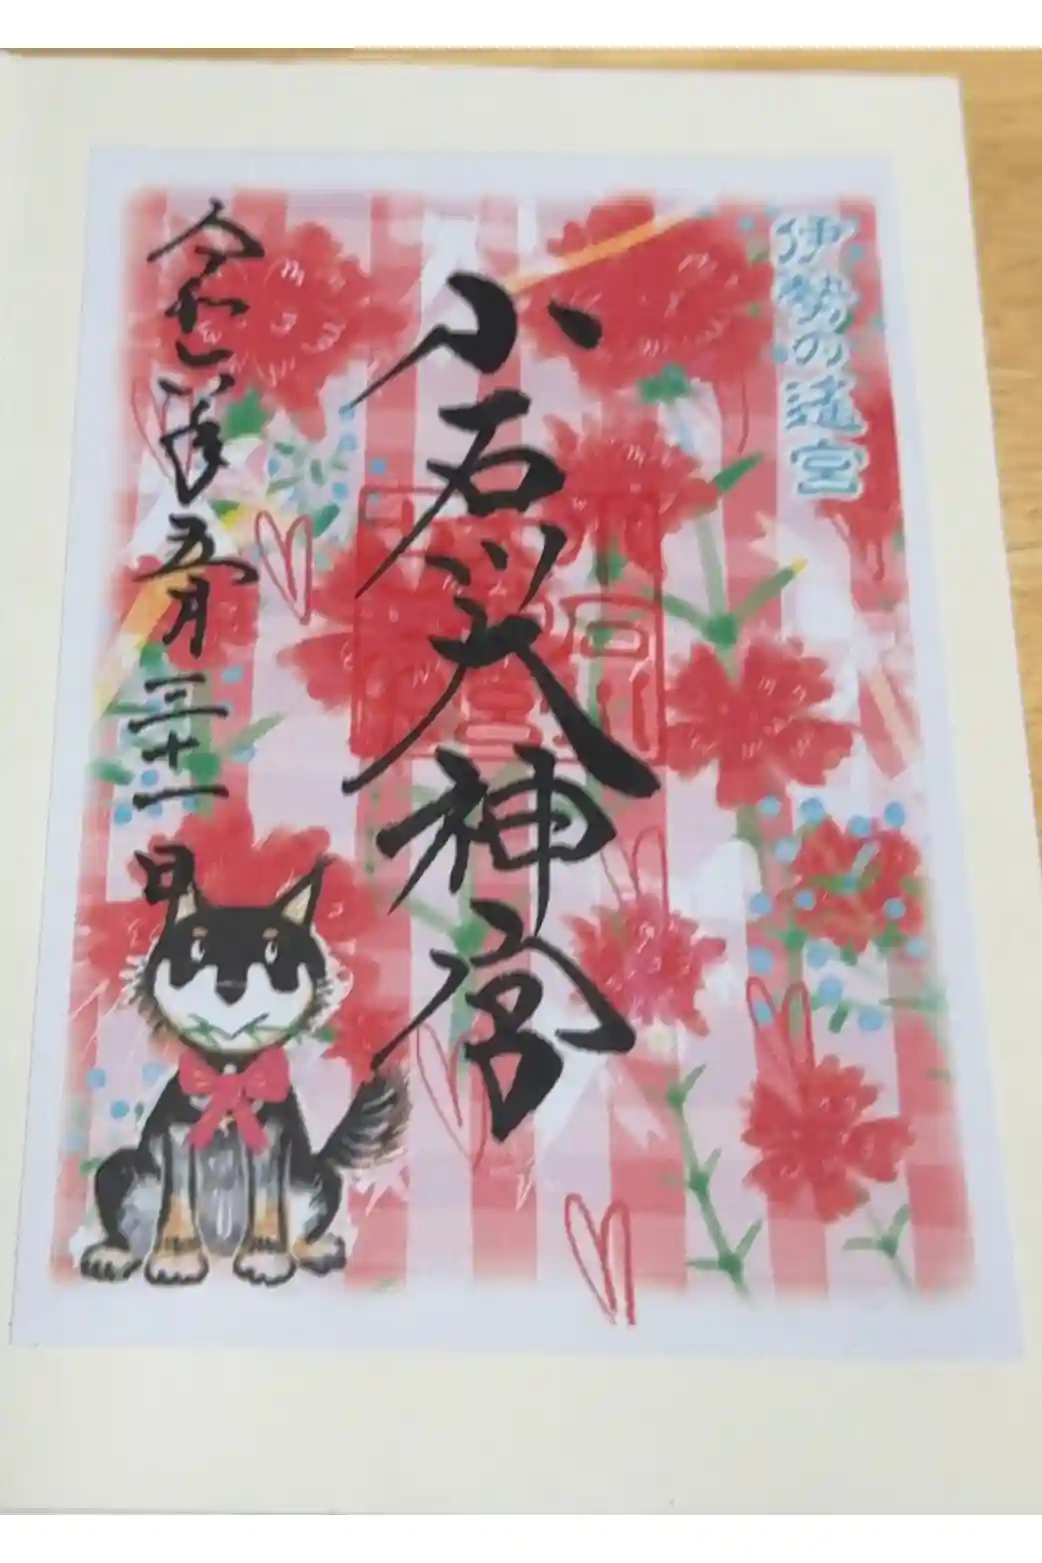 伊勢の遥宮
小石川大神宮
令和六年五月三十一日